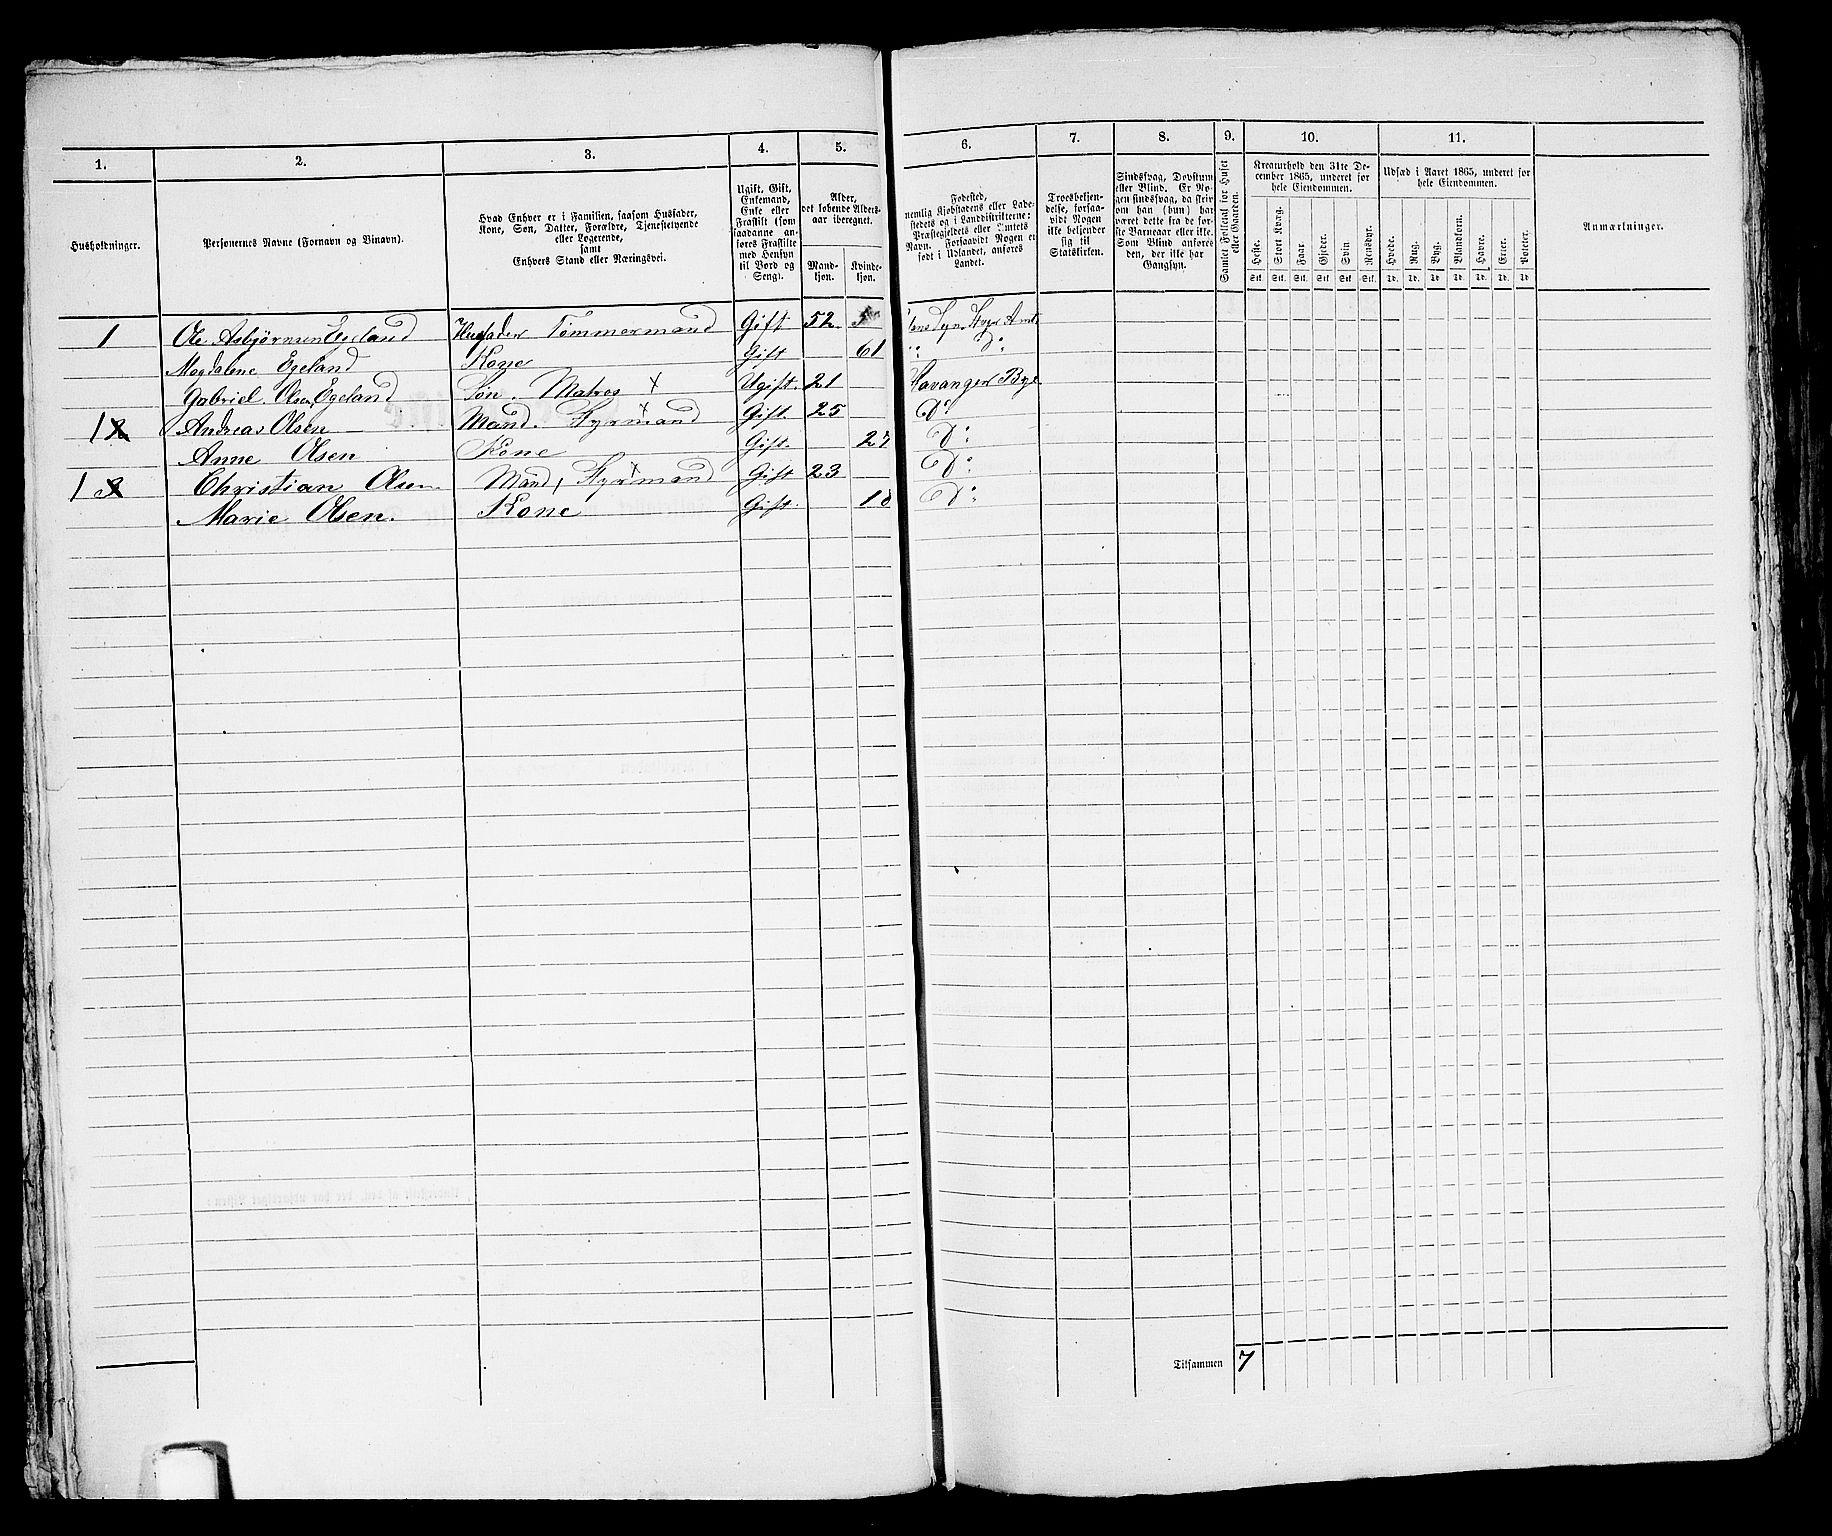 1. 2. 3. 4. 5. 6. 7. 8. 9. 10. 11.
Husholdninger.
Personernes Navne (Fornavn og Vinavn).
Hvad Enhver er i Familien, saasom Husfader,
Kone, Søn, Datter, Forældre, Tjenestetyende
eller Logerende,
samt
Enhvers Stand eller Næringsvei.
Ugift, Gift,
Enkemand,
Enke eller
Fraskilt (som
saadanne an-
føres Fraskilte
med Hensyn
til Bord og
Seng).
Alder,
det løbende Alders-
aar iberegnet.
Mand-
kjøn.
Kvinde-
kjøn.
Fødested,
nemlig Kjøbstadens eller Lade-
stedets og i Landdistrikterne:
Præstegjeldets eller Amtets
Navn. Forsaavidt Nogen er
født i Udlandet, anføres
Landet.
Troesbekjen-
delse, forsaa-
vidt Nogen
ikke bekjender
sig til
Statskirken.
Sindssvag, Døvstum
eller Blind. Er No-
gen sindssvag, da skriv
om han (hun) har
været dette fra de før-
ste Barneaar eller ikke.
Som Blind anføres
den, der ikke har
Gangsyn.
Samlet Folketal for Huset
eller Gaarden.
Kreaturhold den 31te De-
cember 1865, underet for
hele Eiendommen.
Heste. Stort Kvæg. Faar. Gjeder. Svin. Rensdyr.
Stk. Stk. Stk. Stk. Stk. Stk.
Udsæd i Aaret 1865, underet for
hele Eiendommen.
Hvede. Rug. Byg. Blandkorn. Havre. Erter. Poteter.
Td. Td. Td. Td. Td. Td. Td.
Anmærkninger.
1 Ole Asbjørnsen Egeland Husfader Tømmermand Gift 52 Amt
Magdalene Egeland Kone Gift 61 D°
Gabriel Olsen Egeland Søn. Matros X Ugift. 21 Stavanger Bye
1 2 Andreas Olsen Mand. Fyrmand X Gift. 25 D°
Anne Olsen Kone Gift. 27 D°
1 3 Christian Olsen Mand, Fyrmand X Gift 23 D°
Marie Olsen. Kone Gift. 18 D°
Tilsammen 7